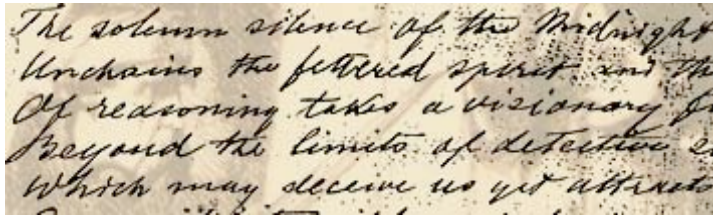 The solemn silence of the Midnight
Unchains the fettered spirit and th
Of reasoning takes a visionary f
Beyond the limits of detective e
Which may deceive us yet attracts